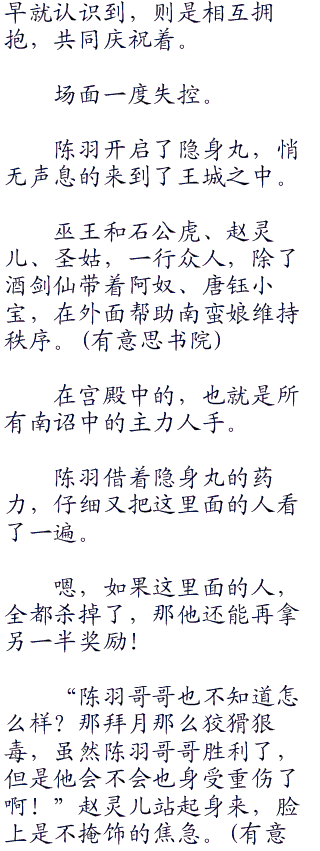 早就认识到，则是相互拥
抱，共同庆祝着。
场面一度失控。
陈羽开启了隐身丸，悄
无声息的来到了王城之中。
巫王和石公虎、赵灵
儿、圣姑，一行众人，除了
酒剑仙带着阿奴、唐钰小
宝，在外面帮助南蛮娘维持
秩序。(有意思书院)
在宫殿中的，也就是所
有南诏中的主力人手。
陈羽借着隐身丸的药
力，仔细又把这里面的人看
了一遍。
嗯，如果这里面的人，
全都杀掉了，那他还能再拿
另一半奖励！
“陈羽哥哥也不知道怎
么样？那拜月那么狡猾狠
毒，虽然陈羽哥哥胜利了，
但是他会不会也身受重伤了
啊！”赵灵儿站起身来，脸
上是不掩饰的焦急。(有意